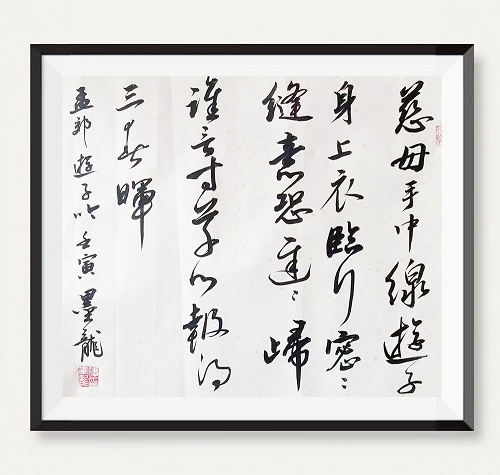 慈母手中線遊子
身上衣臨行密々
縫意恐遲々歸
誰言寸草心報得
三春暉
孟郊遊子吟壬寅墨龍